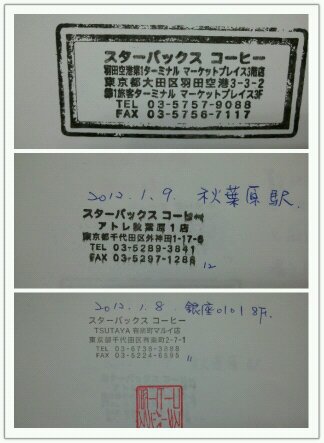 スターバックス コーヒー
羽田空港第1ターミナル マーケットプレイス3階店
東京都大田区羽田空港3-3-2
第1旅客ターミナル マーケットプレイス3F
TEL 03-5757-9088
FAX 03-5756-7117
2012.1.9. 秋葉原駅.
スターバックス コーヒー
アトレ秋葉原1店
東京都千代田区外神田1-17-6
TEL 03-5289-3841
FAX 03-5297-1288
12
2012.1.8. 銀座0101 8F.
スターバックス コーヒー
TSUTAYA 有楽町マルイ店
東京都千代田区有楽町2-7-1
TEL 03-6738-3888
FAX 03-5224-6595
11